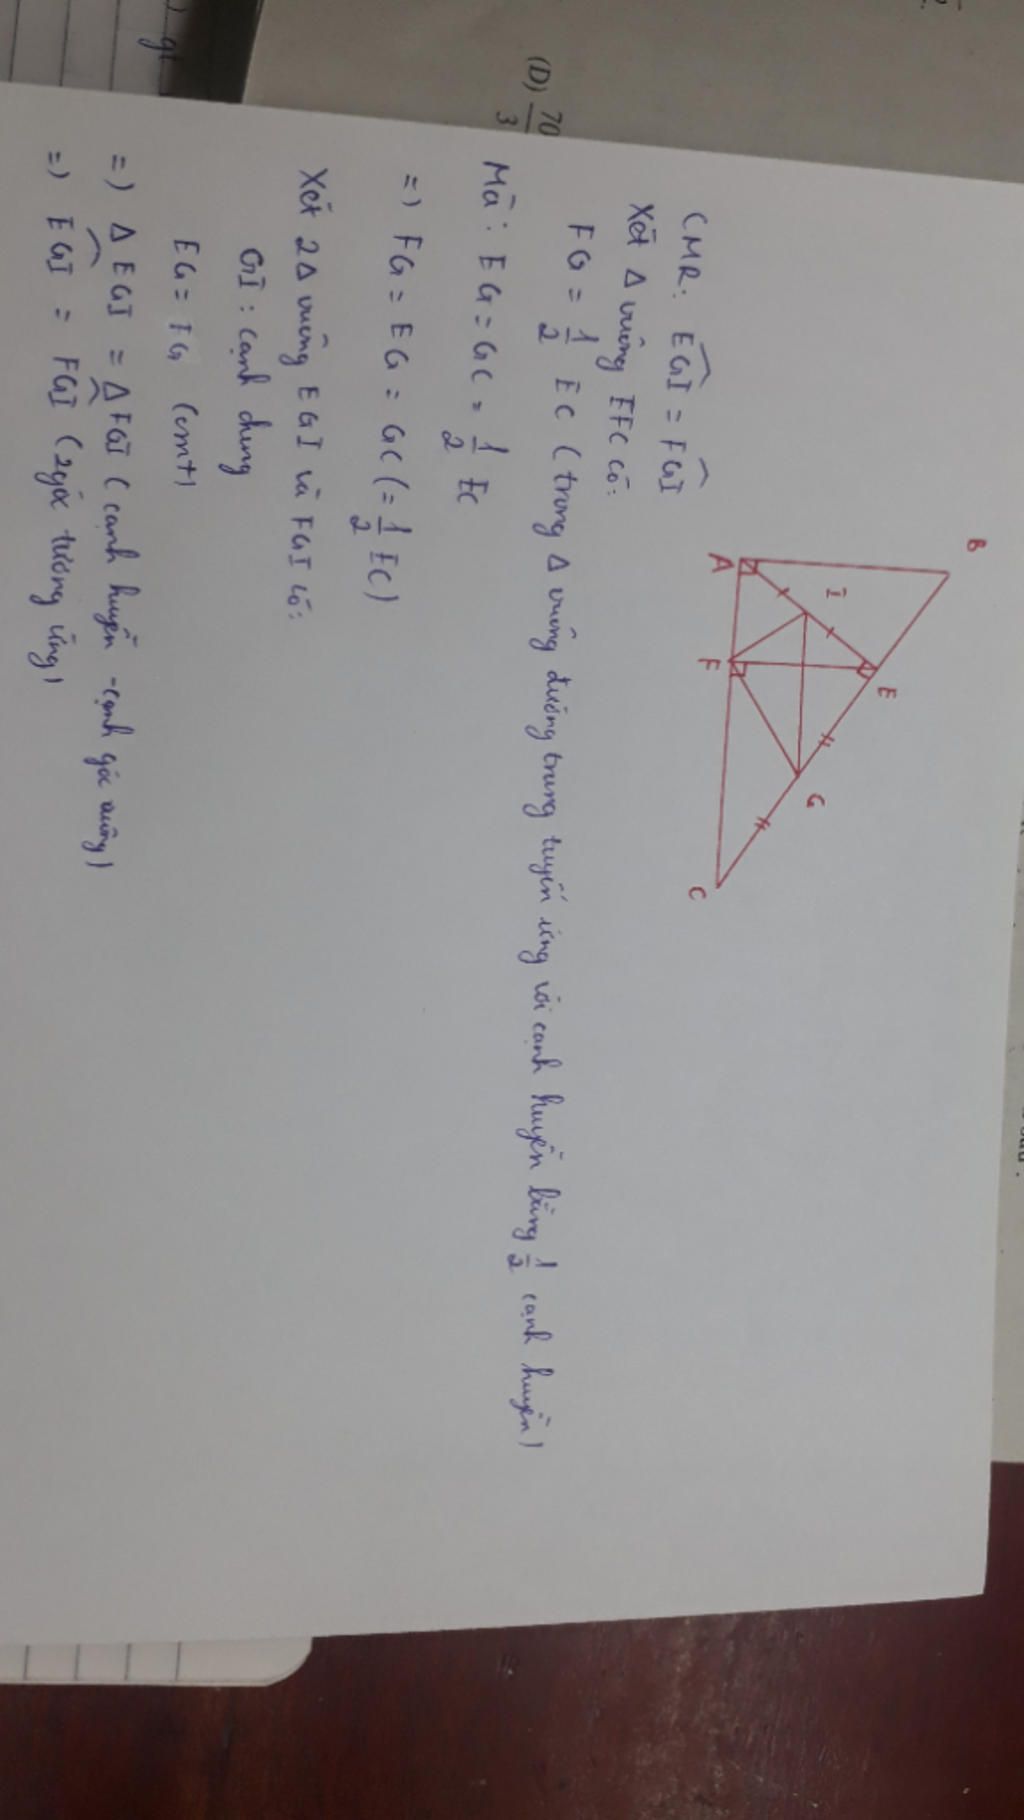 (D) 70/3
gt
B
I
E
A
F
G
C
CMR: EGI = FGI
Xét Δ vuông EFC có:
FG = 1/2 EC (trong Δ vuông đường trung tuyến ứng với cạnh huyền bằng 1/2 cạnh huyền)
Mà: EG = GC = 1/2 EC
=) FG = EG = GC (= 1/2 EC)
Xét 2Δ vuông EGI và FGI có:
GI: cạnh chung
EG = FG (cmt)
=) Δ EGI = Δ FGI (cạnh huyền - cạnh góc vuông)
=) EGI = FGI (2 góc tương ứng)